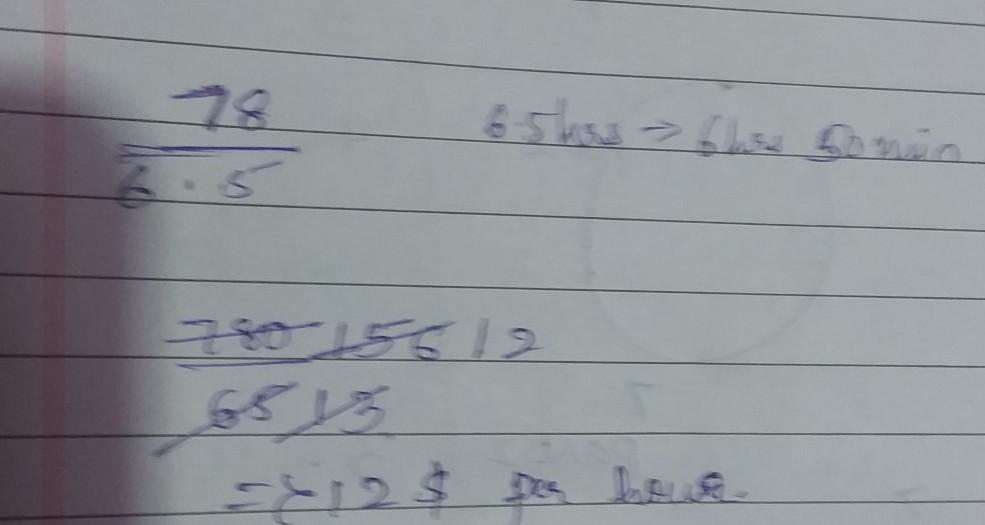 78 6.5hrs → 6hrs 50 min
6.5
780 156 12
65 13
=> 12 $ per hour.